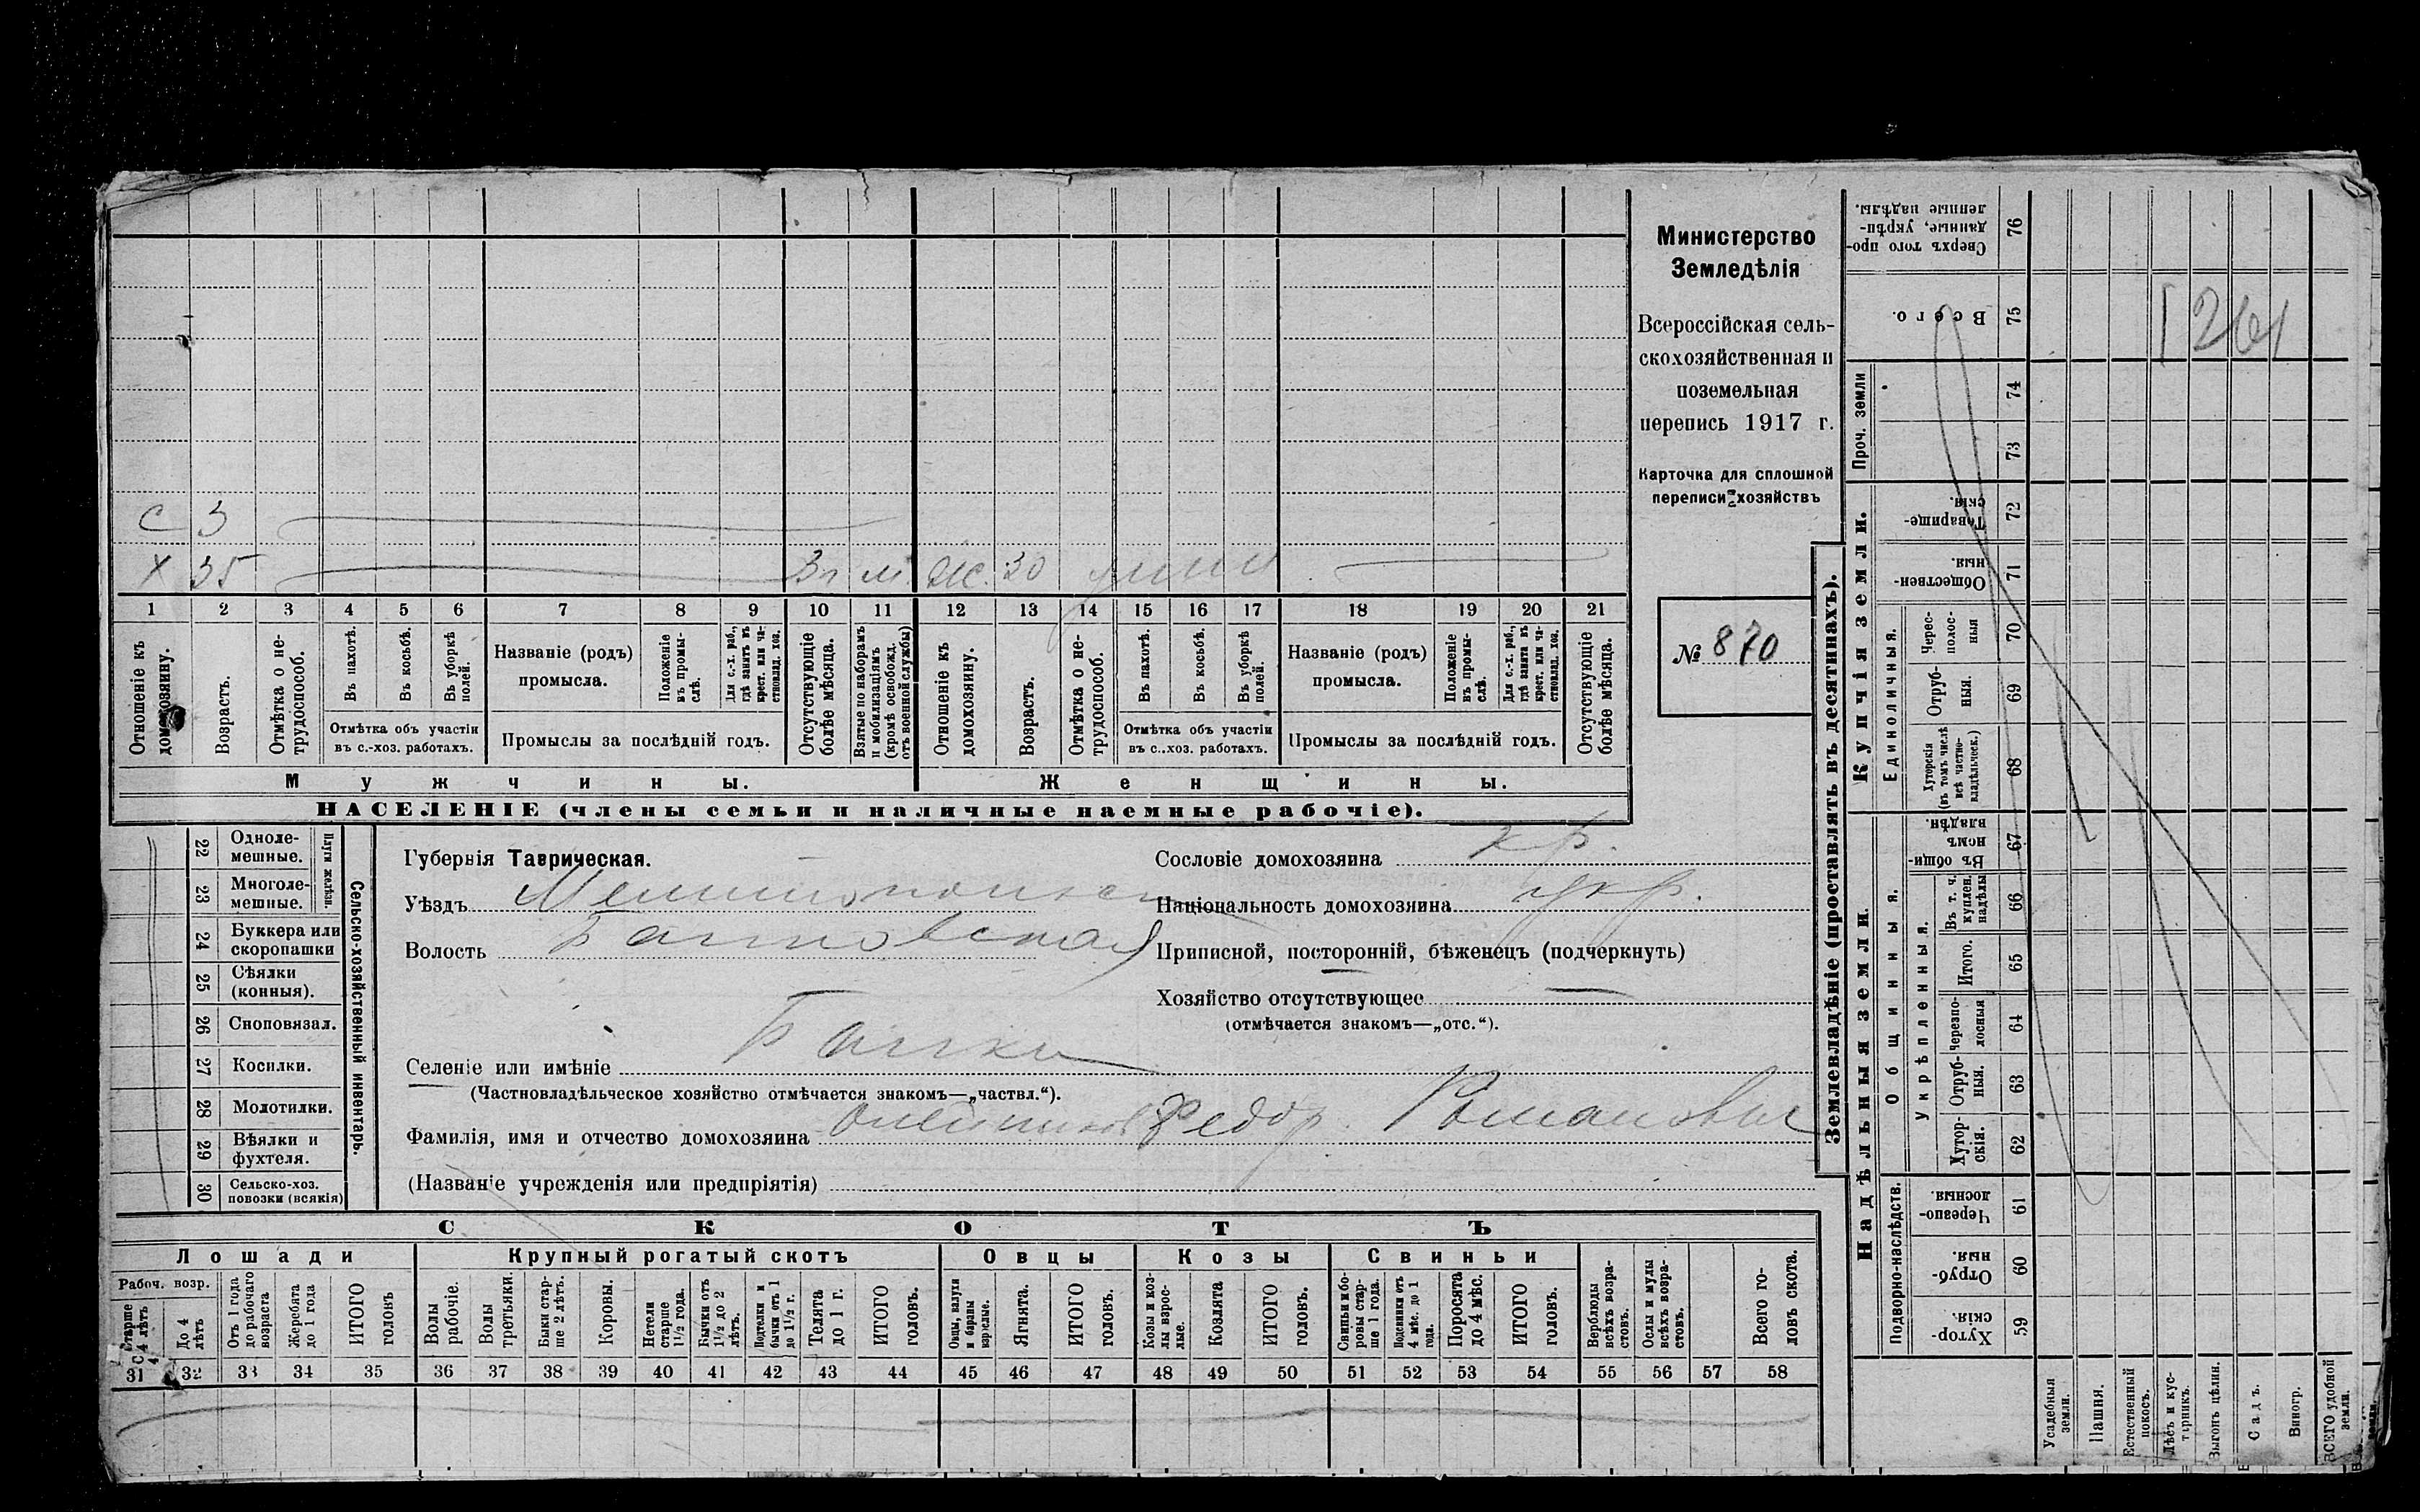 С 3
Х 35 3г м. Ж. 30
1 2 3 4 5 6 7 8 9 10 11 12 13 14 15 16 17 18 19 20 21
Отношеніе къ домохозяину.
Возрастъ.
Отмѣтка о не-трудоспособ.
Въ пахотѣ.
Въ косьбѣ.
Въ уборкѣ полей.
Отмѣтка объ участіи
въ с.-хоз. работахъ.
Названіе (родъ)
промысла.
Положеніе въ промы-слѣ.
Для с.-х. раб., гдѣ занятъ въ крест. или ча-ствовлад. хоз.
Промыслы за послѣдній годъ.
Отсутствующіе болѣе мѣсяца.
Взятые по наборамъ и мобилизаціямъ (кромѣ освобожд. отъ военной службы)
Отношеніе къ домохозяину.
Возрастъ.
Отмѣтка о не-трудоспособ.
Въ пахотѣ.
Въ косьбѣ.
Въ уборкѣ полей.
Отмѣтка объ участіи
въ с.-хоз. работахъ.
Названіе (родъ)
промысла.
Положеніе въ промы-слѣ.
Для с.-х. раб., гдѣ занята въ крест. или ча-ствовлад. хоз.
Промыслы за послѣдній годъ.
Отсутствующіе болѣе мѣсяца.
Мужчины. Женщины.
НАСЕЛЕНІЕ (члены семьи и наличные наемные рабочіе).
Министерство
Земледѣлія
Всероссійская сель-
скохозяйственная и
поземельная
перепись 1917 г.
Карточка для сплошной
переписи хозяйствъ
№ 870
Сельско-хозяйственный инвентарь.
Плуги желѣзн.
22 Одноле-мешные.
23 Многоле-мешные.
24 Буккера или скоропашки
25 Сѣялки (конныя).
26 Сноповязал.
27 Косилки.
28 Молотилки.
29 Вѣялки и фухтеля.
30 Сельско-хоз. повозки (всякія)
Губернія Таврическая.
Уѣздъ Мелитопольск
Волость Балковская
Селеніе или имѣніе Балки
(Частновладѣльческое хозяйство отмѣчается знакомъ—„частвл.“).
Фамилія, имя и отчество домохозяина Олейников Федор Романович
(Названіе учрежденія или предпріятія)
Сословіе домохозяина кр.
Національность домохозяина укр.
Приписной, посторонній, бѣженецъ (подчеркнуть)
Хозяйство отсутствующее —
(отмѣчается знакомъ—„отс.“).
СКОТЪ
Лошади Крупный рогатый скотъ Овцы Козы Свиньи
Рабоч. возр.
Старше 4 лѣтъ
До 4 лѣтъ
Отъ 1 года до рабочаго возраста
Жеребята до 1 года
ИТОГО головъ
Волы рабочіе.
Волы третьяки.
Быки стар-ше 2 лѣтъ.
Коровы.
Нетели старше 1½ года.
Бычки отъ 1½ до 2 лѣтъ.
Подтелки и бычки отъ 1 до 1½ г.
Телята до 1 г.
ИТОГО головъ.
Овцы, валухи и бараны взрослые.
Ягнята.
ИТОГО головъ.
Козы и коз-лы взрос-лые.
Козлята
ИТОГО головъ.
Свиньи и бо-ровы стар-ше 1 года.
Подсвинки отъ 4 мѣс. до 1 года.
Поросята до 4 мѣс.
ИТОГО головъ.
Верблюды всѣхъ возра-стовъ.
Ослы и мулы всѣхъ возра-стовъ.
Всего го-ловъ скота.
31 32 33 34 35 36 37 38 39 40 41 42 43 44 45 46 47 48 49 50 51 52 53 54 55 56 57 58
Землевладѣніе (проставлять въ десятинахъ).
Надѣльныя земли. Купчія земли. Проч. земли
Подворно-наслѣдств.
Общинныя.
Укрѣпленныя.
Единоличныя.
Хутор-скія. 59
Отруб-ныя. 60
Черезпо-лосныя. 61
Хутор-скія. 62
Отруб-ныя. 63
Черезпо-лосныя 64
Итого. 65
Въ т. ч. куплен. надѣлы 66
Въ общи-номъ владѣн. 67
Хуторскія (въ томъ числѣ всѣ частно-владѣльческ.) 68
Отруб-ныя. 69
Черес-полос-ныя 70
Обществен-ныя. 71
Товарище-скія. 72
73
74
Всего. 75
Сверхъ того про-данные, укрѣп-ленные надѣлы. 76
1261
Усадебныя земли.
Пашня.
Естественный покосъ.
Лѣсъ и кус-тарникъ.
Выгонъ цѣлин.
Садъ.
Виногр.
ВСЕГО удобной земли.